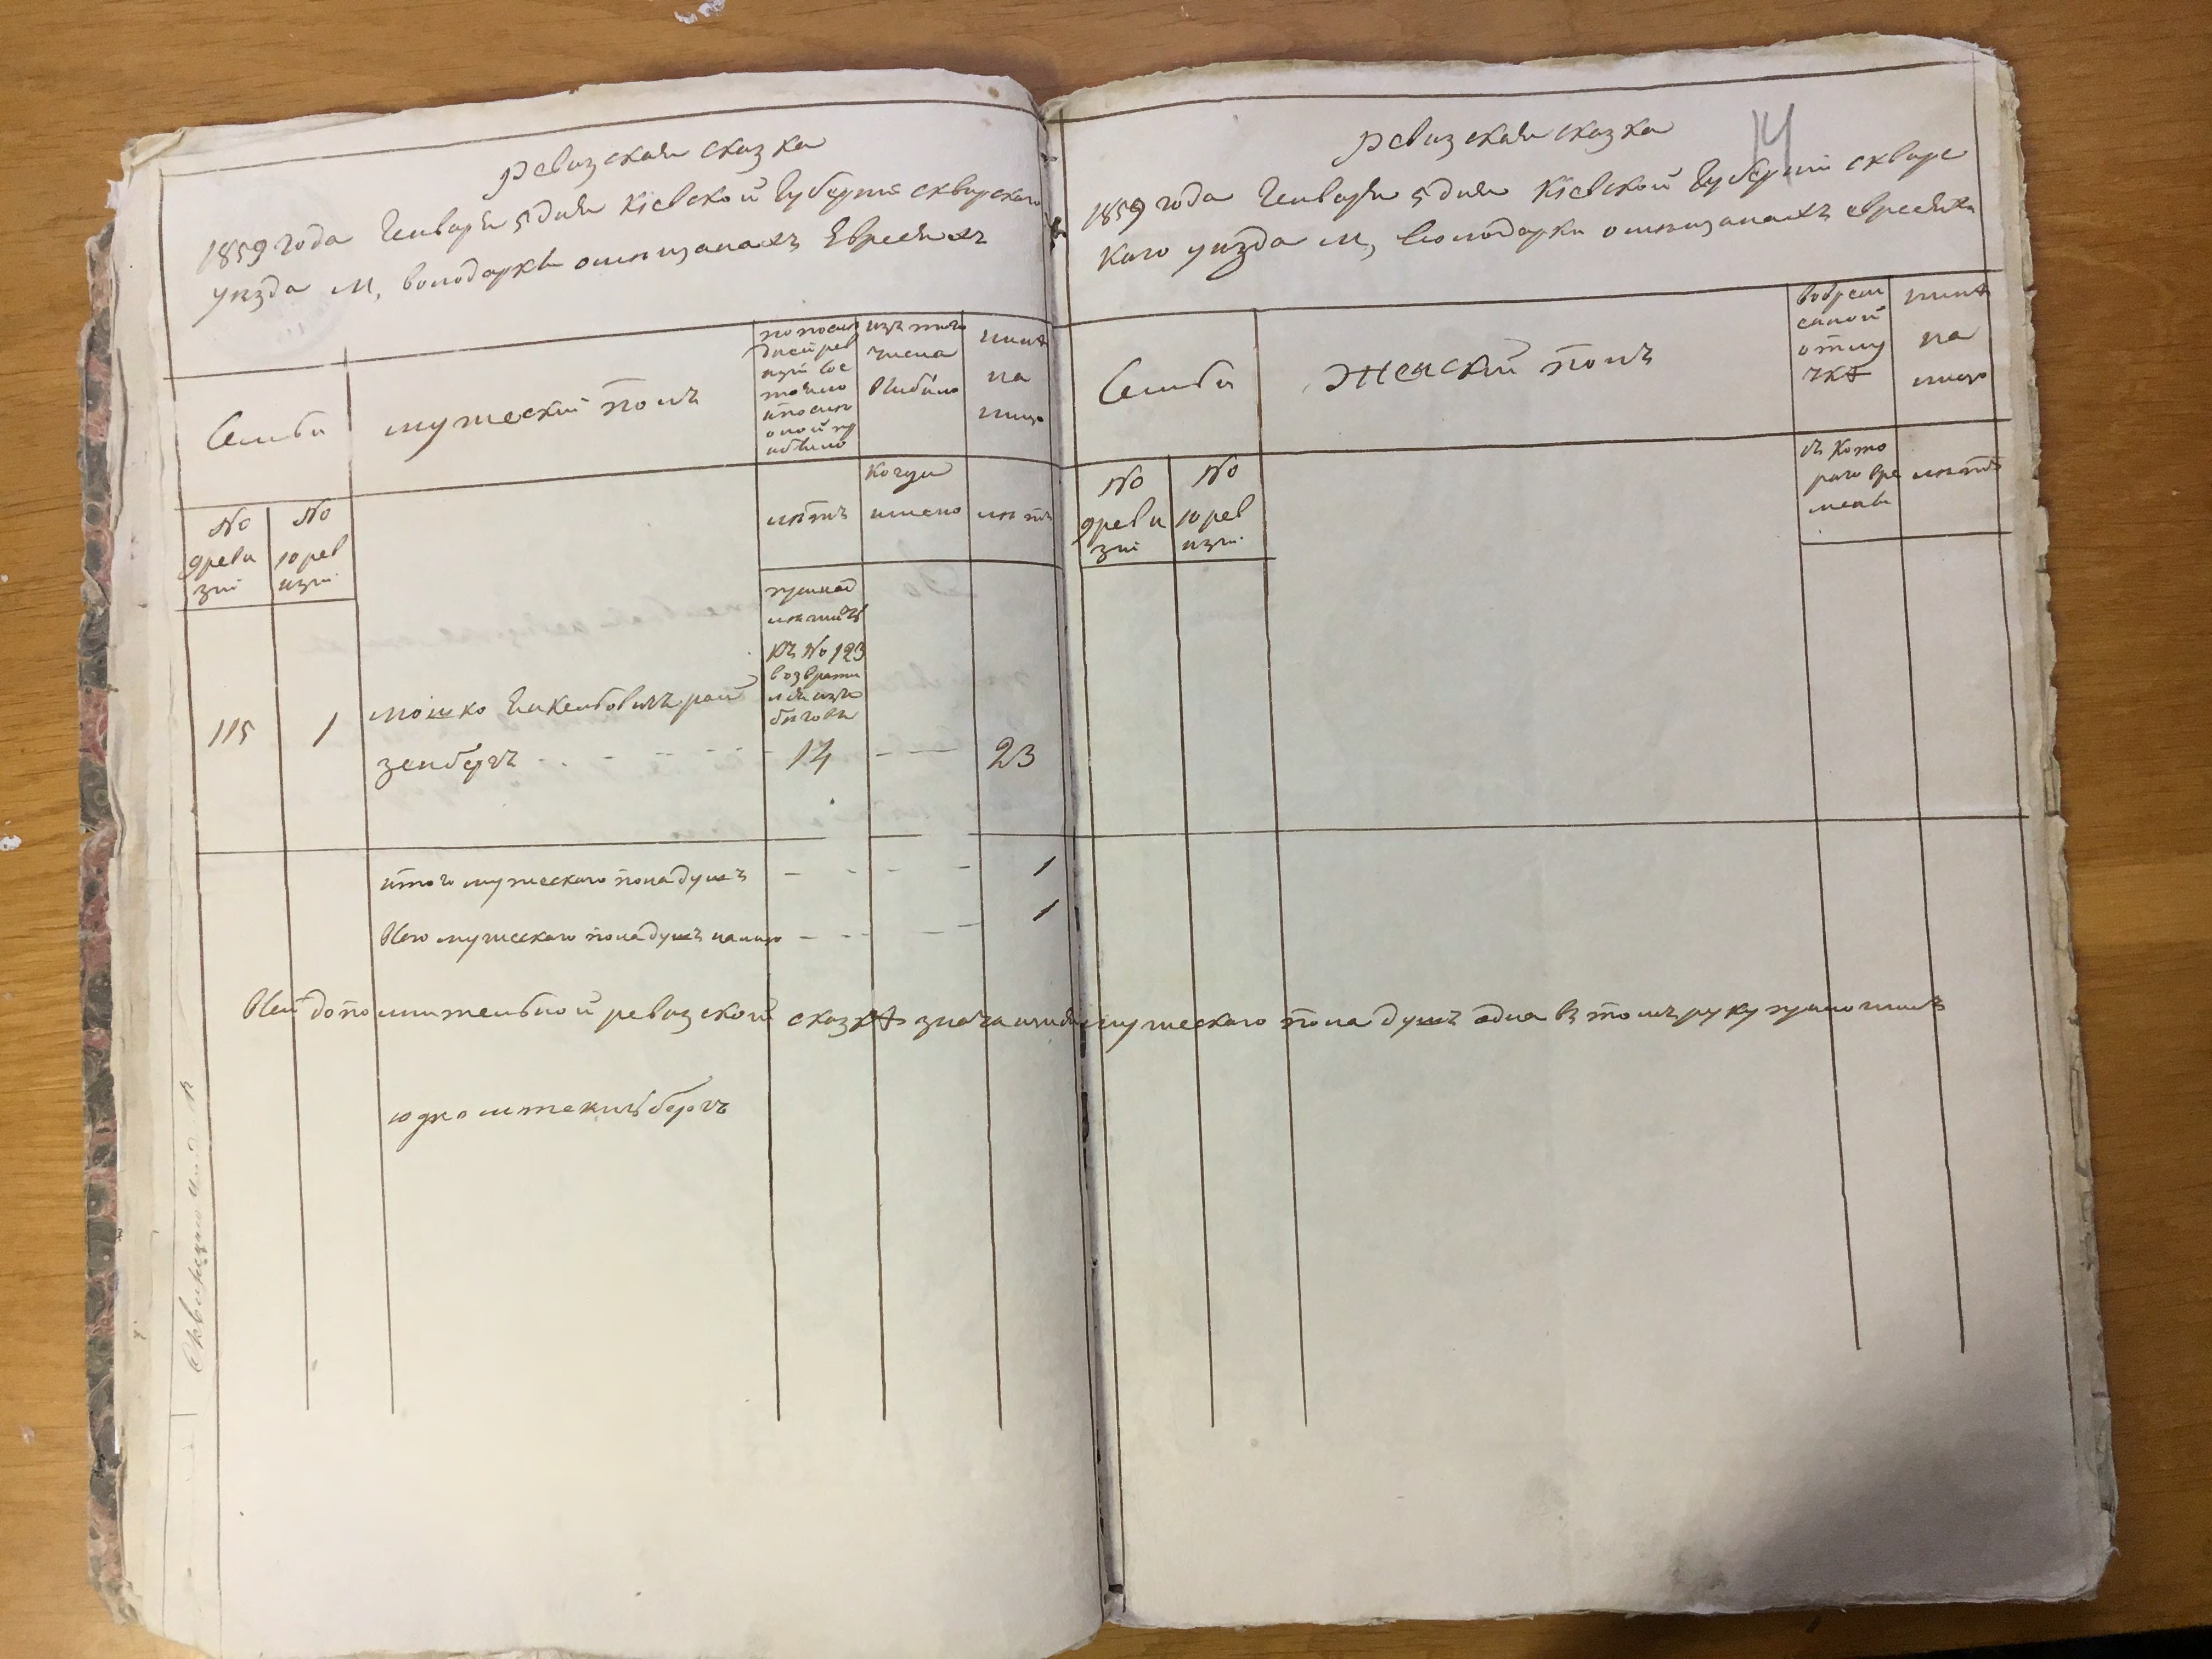 Ревизская сказка
1859 года Генваря 5 дня Кіевской Губерніи Сквирскаго
уизда м, володарки описанахъ Евреяхъ
Семьи
мужескій полъ
по после
дней рев
изіи сос
тояло
и после
оной пр
обыло
изъ того
числа
выбило
ныне
на
лицо
№
9 реви
зіи
№
10 рев
изіи
летъ
когда
имено
летъ
принад
лежитъ
къ № 123
возврати
лся изъ
бегов
115
1
мошко Янкельовичъ рай
зенбергъ
14
23
итого мужескаго пола душъ
1
Всего мужескаго пола душъ налицо
1
Всей дополнительной ревизской сказке значащихся мужескаго пола душъ одна в томъ руку приложилъ
юдко штекельбергъ
Ревизская сказка
14
1859 года Генваря 5 дня Кіевской Губерніи Сквирс
каго уизда м, володарки описанахъ евреяхъ
Семьи
Женскій полъ
во врем
енной
отлу
чке
ныне
на
лицо
№
9 реви
зіи
№
10 рев
изіи
съ кото
раго вре
мени
летъ